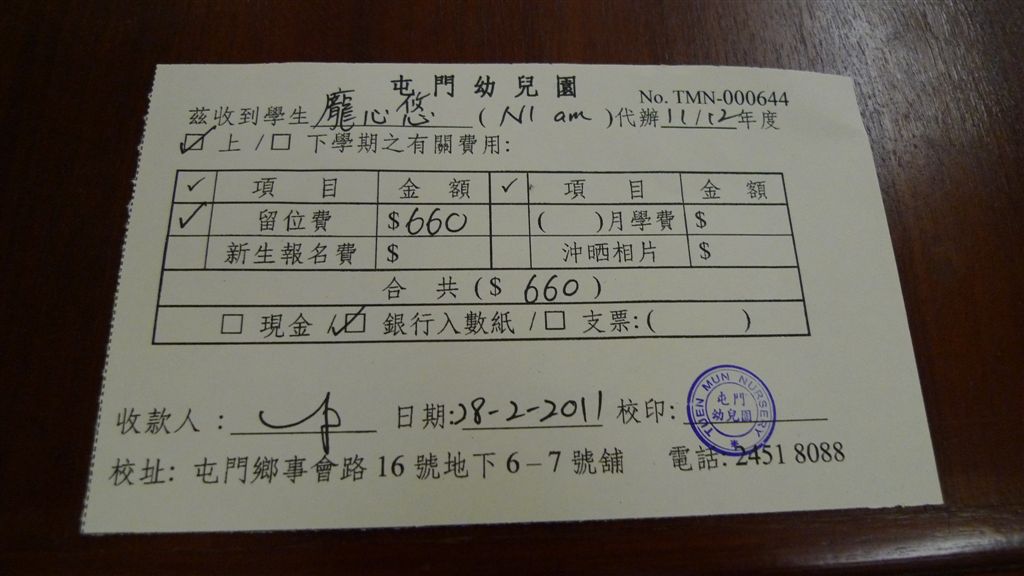 屯門幼兒園
No. TMN-000644
茲收到學生 龐心悠 ( N1 am )代辦 11/12 年度
☑ 上 / ☐ 下學期之有關費用:
✓ 項 目 金 額 ✓ 項 目 金 額
✓ 留位費 $660 ( )月學費 $
新生報名費 $ 沖晒相片 $
合 共 ($ 660 )
☐ 現金 / ☑ 銀行入數紙 / ☐ 支票:( )
收款人 : 日期:28-2-2011 校印:
TUEN MUN NURSERY 屯門幼兒園
校址: 屯門鄉事會路 16 號地下 6–7 號舖 電話: 2451 8088